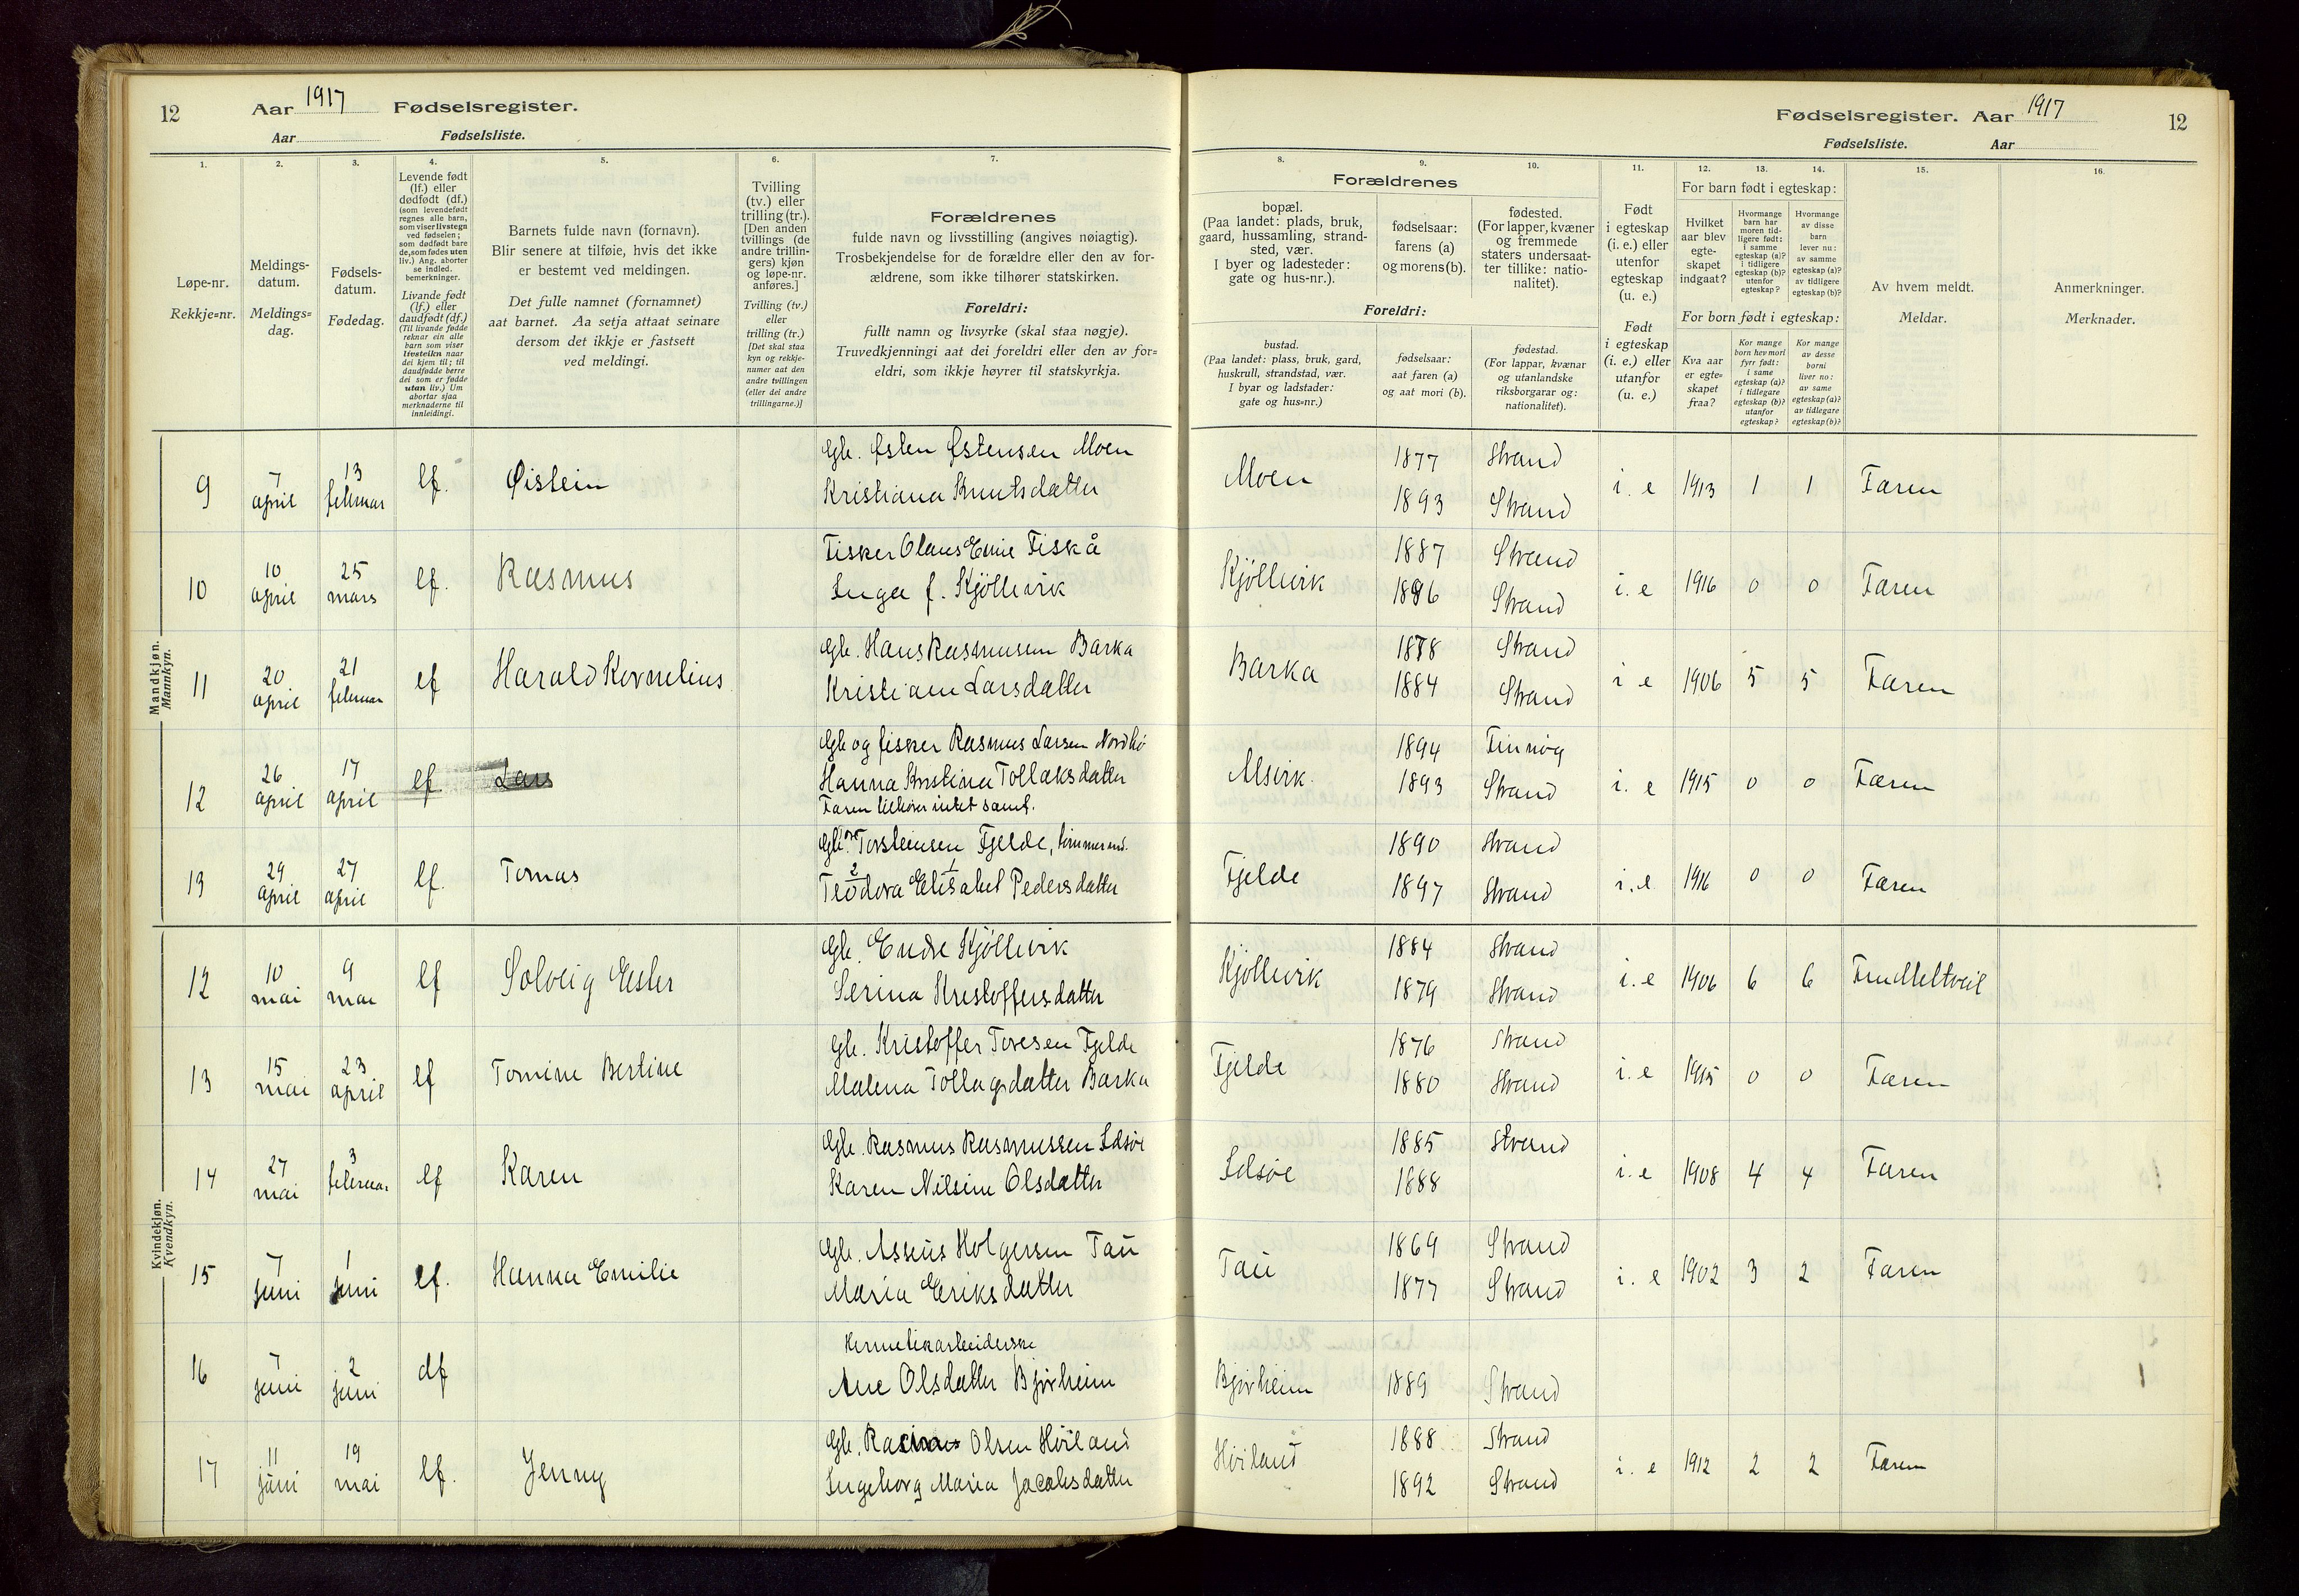 12 Aar 1917 Fødselsregister.
Aar Fødselsliste.
1.
2.
3.
4.
5.
6.
7.
Løpe-nr.
Rekkje=nr.
Meldings-
datum.
Meldings=
dag.
Fødsels-
datum.
Fødedag.
Levende født
(lf.) eller
dødfødt (df.)
(som levendefødt
regnes alle barn,
som viser livstegn
ved fødselen;
som dødfødt bare
de, som fødes uten
liv.) Ang. aborter
se indled.
bemerkninger.
Livande født
(lf.) eller
daudfødt (df.)
(Til livande fødde
reknar ein alle
barn som viser
livsteikn naar
dei kjem til; til
daudfødde berre
dei som er fødde
utan liv.) Um
abortar sjaa
merknaderne til
innleidingi.
Barnets fulde navn (fornavn).
Blir senere at tilføie, hvis det ikke
er bestemt ved meldingen.
Det fulle namnet (fornamnet)
aat barnet. Aa setja attaat seinare
dersom det ikkje er fastsett
ved meldingi.
Tvilling
(tv.) eller
trilling (tr.).
[Den anden
tvillings (de
andre trillin-
gers) kjøn
og løpe-nr.
anføres.]
Tvilling (tv.)
eller
trilling (tr.)
[Det skal staa
kyn og rekkje-
numer aat den
andre tvillingen
(eller dei andre
trillingarne.)]
Forældrenes
fulde navn og livsstilling (angives nøiagtig).
Trosbekjendelse for de forældre eller den av for-
ældrene, som ikke tilhører statskirken.
Foreldri:
fullt namn og livsyrke (skal staa nøgje).
Truvedkjenningi aat dei foreldri eller den av for=
eldri, som ikkje høyrer til statskyrkja.
Fødselsregister. Aar 1917 12
Fødselsliste. Aar
8.
9.
10.
11.
12.
13.
14.
15.
16.
Forældrenes
bopæl.
(Paa landet: plads, bruk,
gaard, hussamling, strand-
sted, vær.
I byer og ladesteder:
gate og hus-nr.).
fødselsaar:
farens (a)
og morens (b).
fødested.
(For lapper, kvæner
og fremmede
staters undersaat-
ter tillike: natio-
nalitet).
Foreldri:
bustad.
(Paa landet: plass, bruk, gard,
huskrull, strandstad, vær.
I byar og ladstader:
gate og hus=nr.)
fødselsaar:
aat faren (a)
og aat mori (b).
fødestad.
(For lappar, kvænar
og utanlandske
riksborgarar og:
nationalitet).
Født
i egteskap
(i. e.) eller
utenfor
egteskap
(u. e.)
Født
i egteskap
(i. e.) eller
utanfor
(u. e.)
For barn født i egteskap:
Hvilket
aar blev
egte-
skapet
indgaat?
Hvormange
barn har
moren tid-
ligere født:
i samme
egteskap (a)?
i tidligere
egteskap (b)?
utenfor
egteskap?
Hvormange
av disse
barn
lever nu:
av samme
egteskap (a)?
av tidligere
egteskap (b)?
For born født i egteskap:
Kva aar
er egte=
skapet
fraa?
Kor mange
born hev mori
fyrr født:
i same
egteskap (a)?
i tidlegare
egteskap (b)?
utanfor
egteskap?
Kor mange
av desse
borni
liver no:
av same
egteskap (a)?
av tidlegare
egteskap (b)?
Av hvem meldt.
Meldar.
Anmerkninger.
Merknader.
Mandkjøn.
Mannkyn.
9 7 april 13 februar lf. Øistein Gb. Østen Østensen Moen Moen 1877 Strand i. e 1913 1 1 Faren
Kristiana Knutsdatter 1893 Strand
10 10 april 25 mars lf. Rasmus Fisker Olaus Emie Fiskå Kjöllevik 1887 Strand i. e 1916 0 0 Faren
Inga f. Kjöllevik 1896 Strand
11 20 april 21 februar lf Harald Kornelius Gb. Hans Rasmussen Barka Barka 1878 Strand i e 1906 5 5 Faren
Kristiane Larsdatter 1884 Strand
12 26 april 17 april lf. Lars Gb og fisker Rasmus Larsen Nordbø Alsvik 1894 Finnøy i. e 1915 0 0 Faren
Hanna Kristina Tollaksdatter 1893 Strand
Faren tilhører intet samf.
13 29 april 27 april lf. Tomas Gb. Torsteinsen Fjelde, tømmerm. Fjelde 1890 Strand i. e 1916 0 0 Faren
2 1
Teodora Elisabet Pedersdatter 1897 Strand
Kvindekjøn.
Kvendkyn.
12 10 mai 9 mai lf Solveig Ester Gb. Endre Kjöllevik Kjöllevik 1884 Strand i. e 1906 6 6
Serina Kristoffersdatter 1879 Strand
13 15 mai 23 april lf Tomine Bertine Gb. Kristoffer Toresen Fjelde Fjelde 1876 Strand i. e 1915 0 0 Faren
Malena Tollagsdatter Barka 1880 Strand
14 27 mai 3 februar lf Karen Gb. Rasmus Rasmussen Idsøe Idsøe 1885 Strand i. e 1908 4 4 Faren
Karen Nilsine Olsdatter 1888
15 7 juni 1 juni lf. Hanna Emilie Gb. Asseus Holgersen Tau Tau 1869 Strand i. e 1902 3 2 Faren
Maria Eriksdatter 1877 Strand
16 7 juni 2 juni df Hermetikarbeiderske
Ane Olsdatter Bjørheim Bjørheim 1889 Strand 1
17 11 juni 19 mai lf. Jenny Gb. Rasmus Olsen Høiland Høiland 1888 Strand i. e 1912 2 2 Faren
Ingeborg Maria Jacobsdatter 1892 Strand